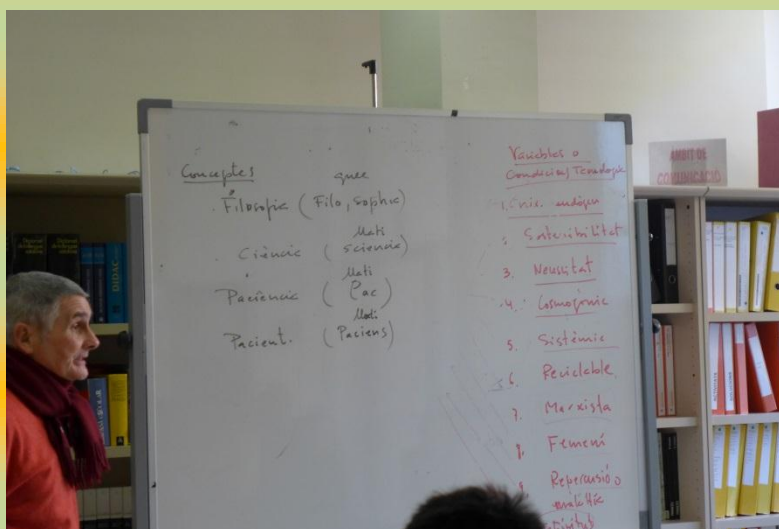 Conceptes
grec
Filosofia (Filo, sophia)
Llatí
Ciència (sciencia)
Llatí
Paciència (Pac)
Llatí
Pacient. (Paciens)
Variables o
Condicions Tecnologia
1.
Sostenibilitat
3. Necessitat
4. Cosmogonic
5. Sistèmic
6. Reciclable
7. Marxista
8. Femení
9. Repercusió o
ÀMBIT DE
COMUNICACIÓ
DIDAC